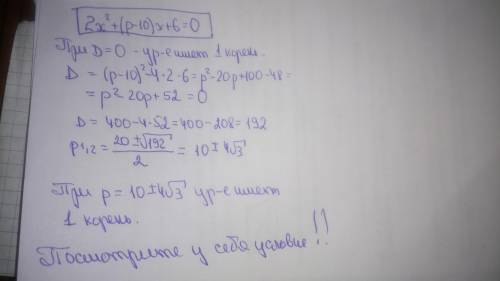 2x²+(p-10)x+6=0
При D=0 - ур-е имеет 1 корень.
D = (p-10)²-4·2·6=p²-20p+100-48=
= p²-20p+52=0
D = 400-4·52=400-208=192
p₁,₂=(20±√192)/2=10±4√3
При p=10±4√3 ур-е имеет
1 корень.
Посмотрите у себя условие!!